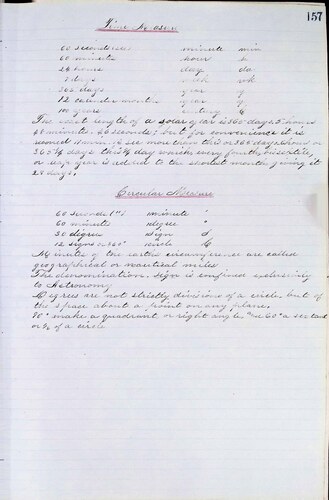 157
Time Measure
60 seconds minute min
60 minutes hour h
24 hours day da
7 days week wk
365 days year y
12 calendar months year y
100 years century C
The exact length of a solar year is 365 days 5 hours
48 minutes 46 seconds; but for convenience it is
365 1/4 days this 1/4 day which every fourth, bissextile
or leap year is added to the shortest month giving it
29 days.
Circular Measure
60 seconds (") minute '
60 minutes degree °
30 degrees sign S
12 signs or 360° circle C
Minutes of the earths circumference are called
geographical or nautical miles
The denomination, sign is confined exclusively
to Astronomy
Degrees are not strictly divisions of a circle but of
the space about a point on any plane,
90° make a quadrant or right angle and 60° a sextant
or 1/6 of a circle